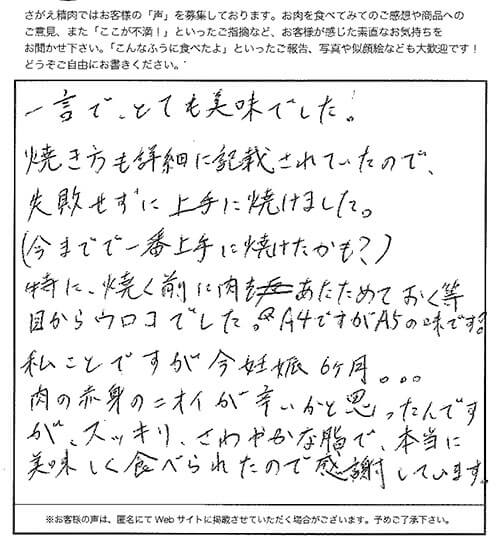 さがえ精肉ではお客様の「声」を募集しております。お肉を食べてみてのご感想や商品への
ご意見、また「ここが不満！」といったご指摘など、お客様が感じた素直なお気持ちを
お聞かせ下さい。「こんなふうに食べたよ」といったご報告、写真や似顔絵なども大歓迎です！
どうぞご自由にお書きください。
一言で、とても美味でした！
焼き方も詳細に記載されていたので、
失敗せずに上手に焼けました。
(今までで一番上手に焼けたかも？)
特に、焼く前に肉をあたためておく等
目からウロコでした。A4ですがA5の味です？
私ことですが今妊娠6ヶ月。。。
肉の赤身のニオイが辛いかと思ったんです
が、スッキリ、さわやかな脂で、本当に
美味しく食べられたので感謝しています。
※お客様の声は、匿名にてWebサイトに掲載させていただく場合がございます。予めご了承下さい。